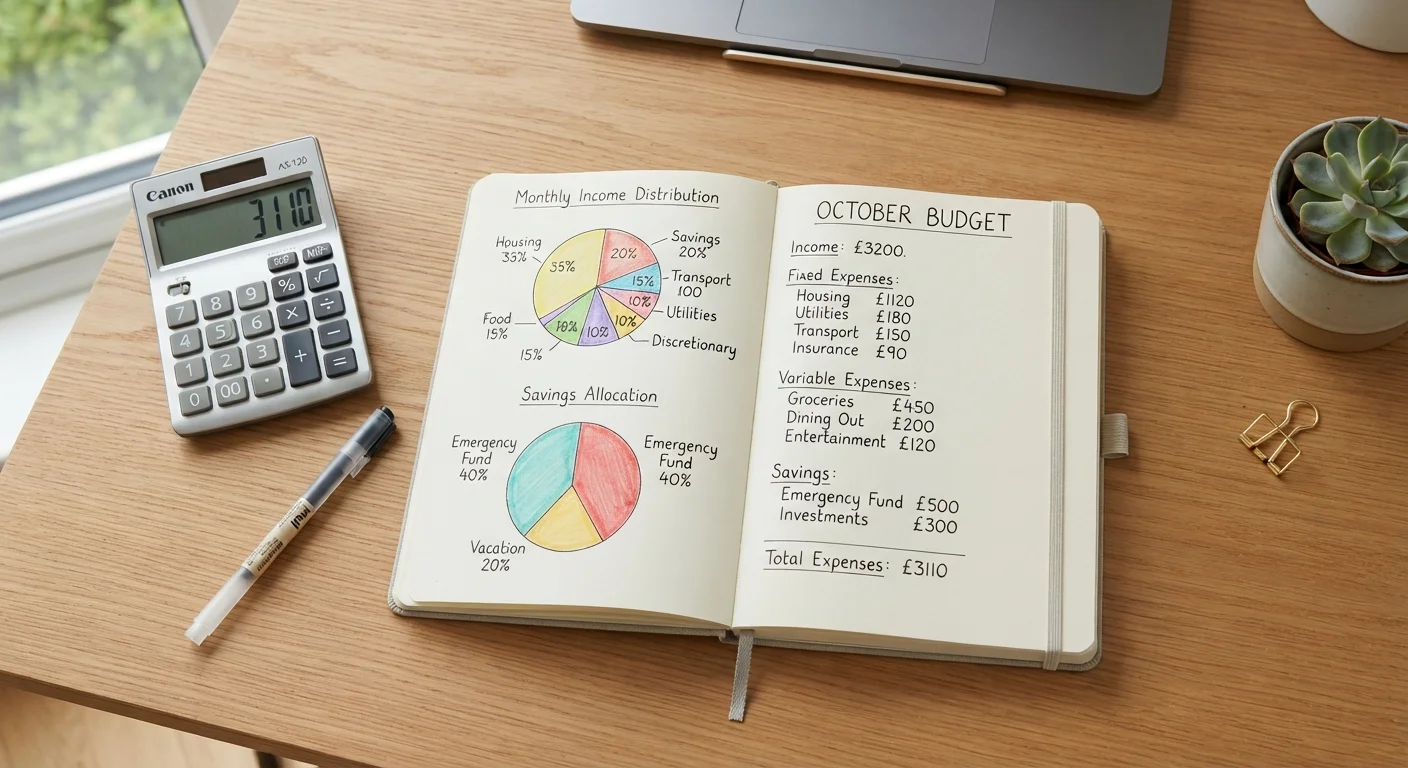 Canon
3110
7 8 9 % √
4 5 6 × ÷
1 2 3 + −
0 00 · =
Monthly Income Distribution
Housing
35%
35%
20%
Savings
20%
15%
Transport
100
10%
Utilities
10%
Discretionary
10%
Food
15%
15%
Savings Allocation
Emergency
Fund
40%
Emergency
Fund
40%
Vacation
20%
OCTOBER BUDGET
Income: £3200.
Fixed Expenses:
Housing £1120
Utilities £180
Transport £150
Insurance £90
Variable Expenses:
Groceries £450
Dining Out £200
Entertainment £120
Savings:
Emergency Fund £500
Investments £300
Total Expenses: £3110